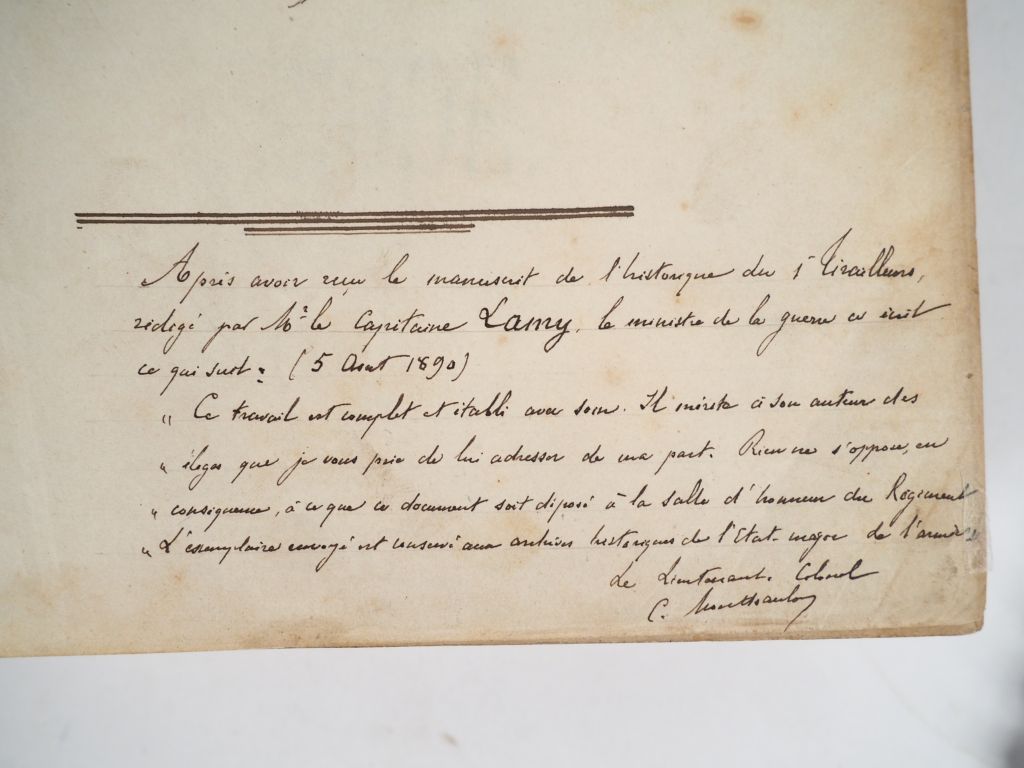 Après avoir reçu le manuscrit de l'historique du 1er Tirailleurs,
rédigé par Mr le Capitaine Lamy, le ministre de la guerre a écrit
ce qui suit : (5 Aout 1890)
" Ce travail est complet et établi avec soin. Il mérite à son auteur des
" éloges que je vous prie de lui adresser de ma part. Rien ne s'oppose, en
" conséquence, à ce que ce document soit déposé à la salle d'honneur du Régiment
" L'exemplaire envoyé est conservé aux archives historiques de l'Etat-major de l'armée
Le Lieutenant. Colonel
C.